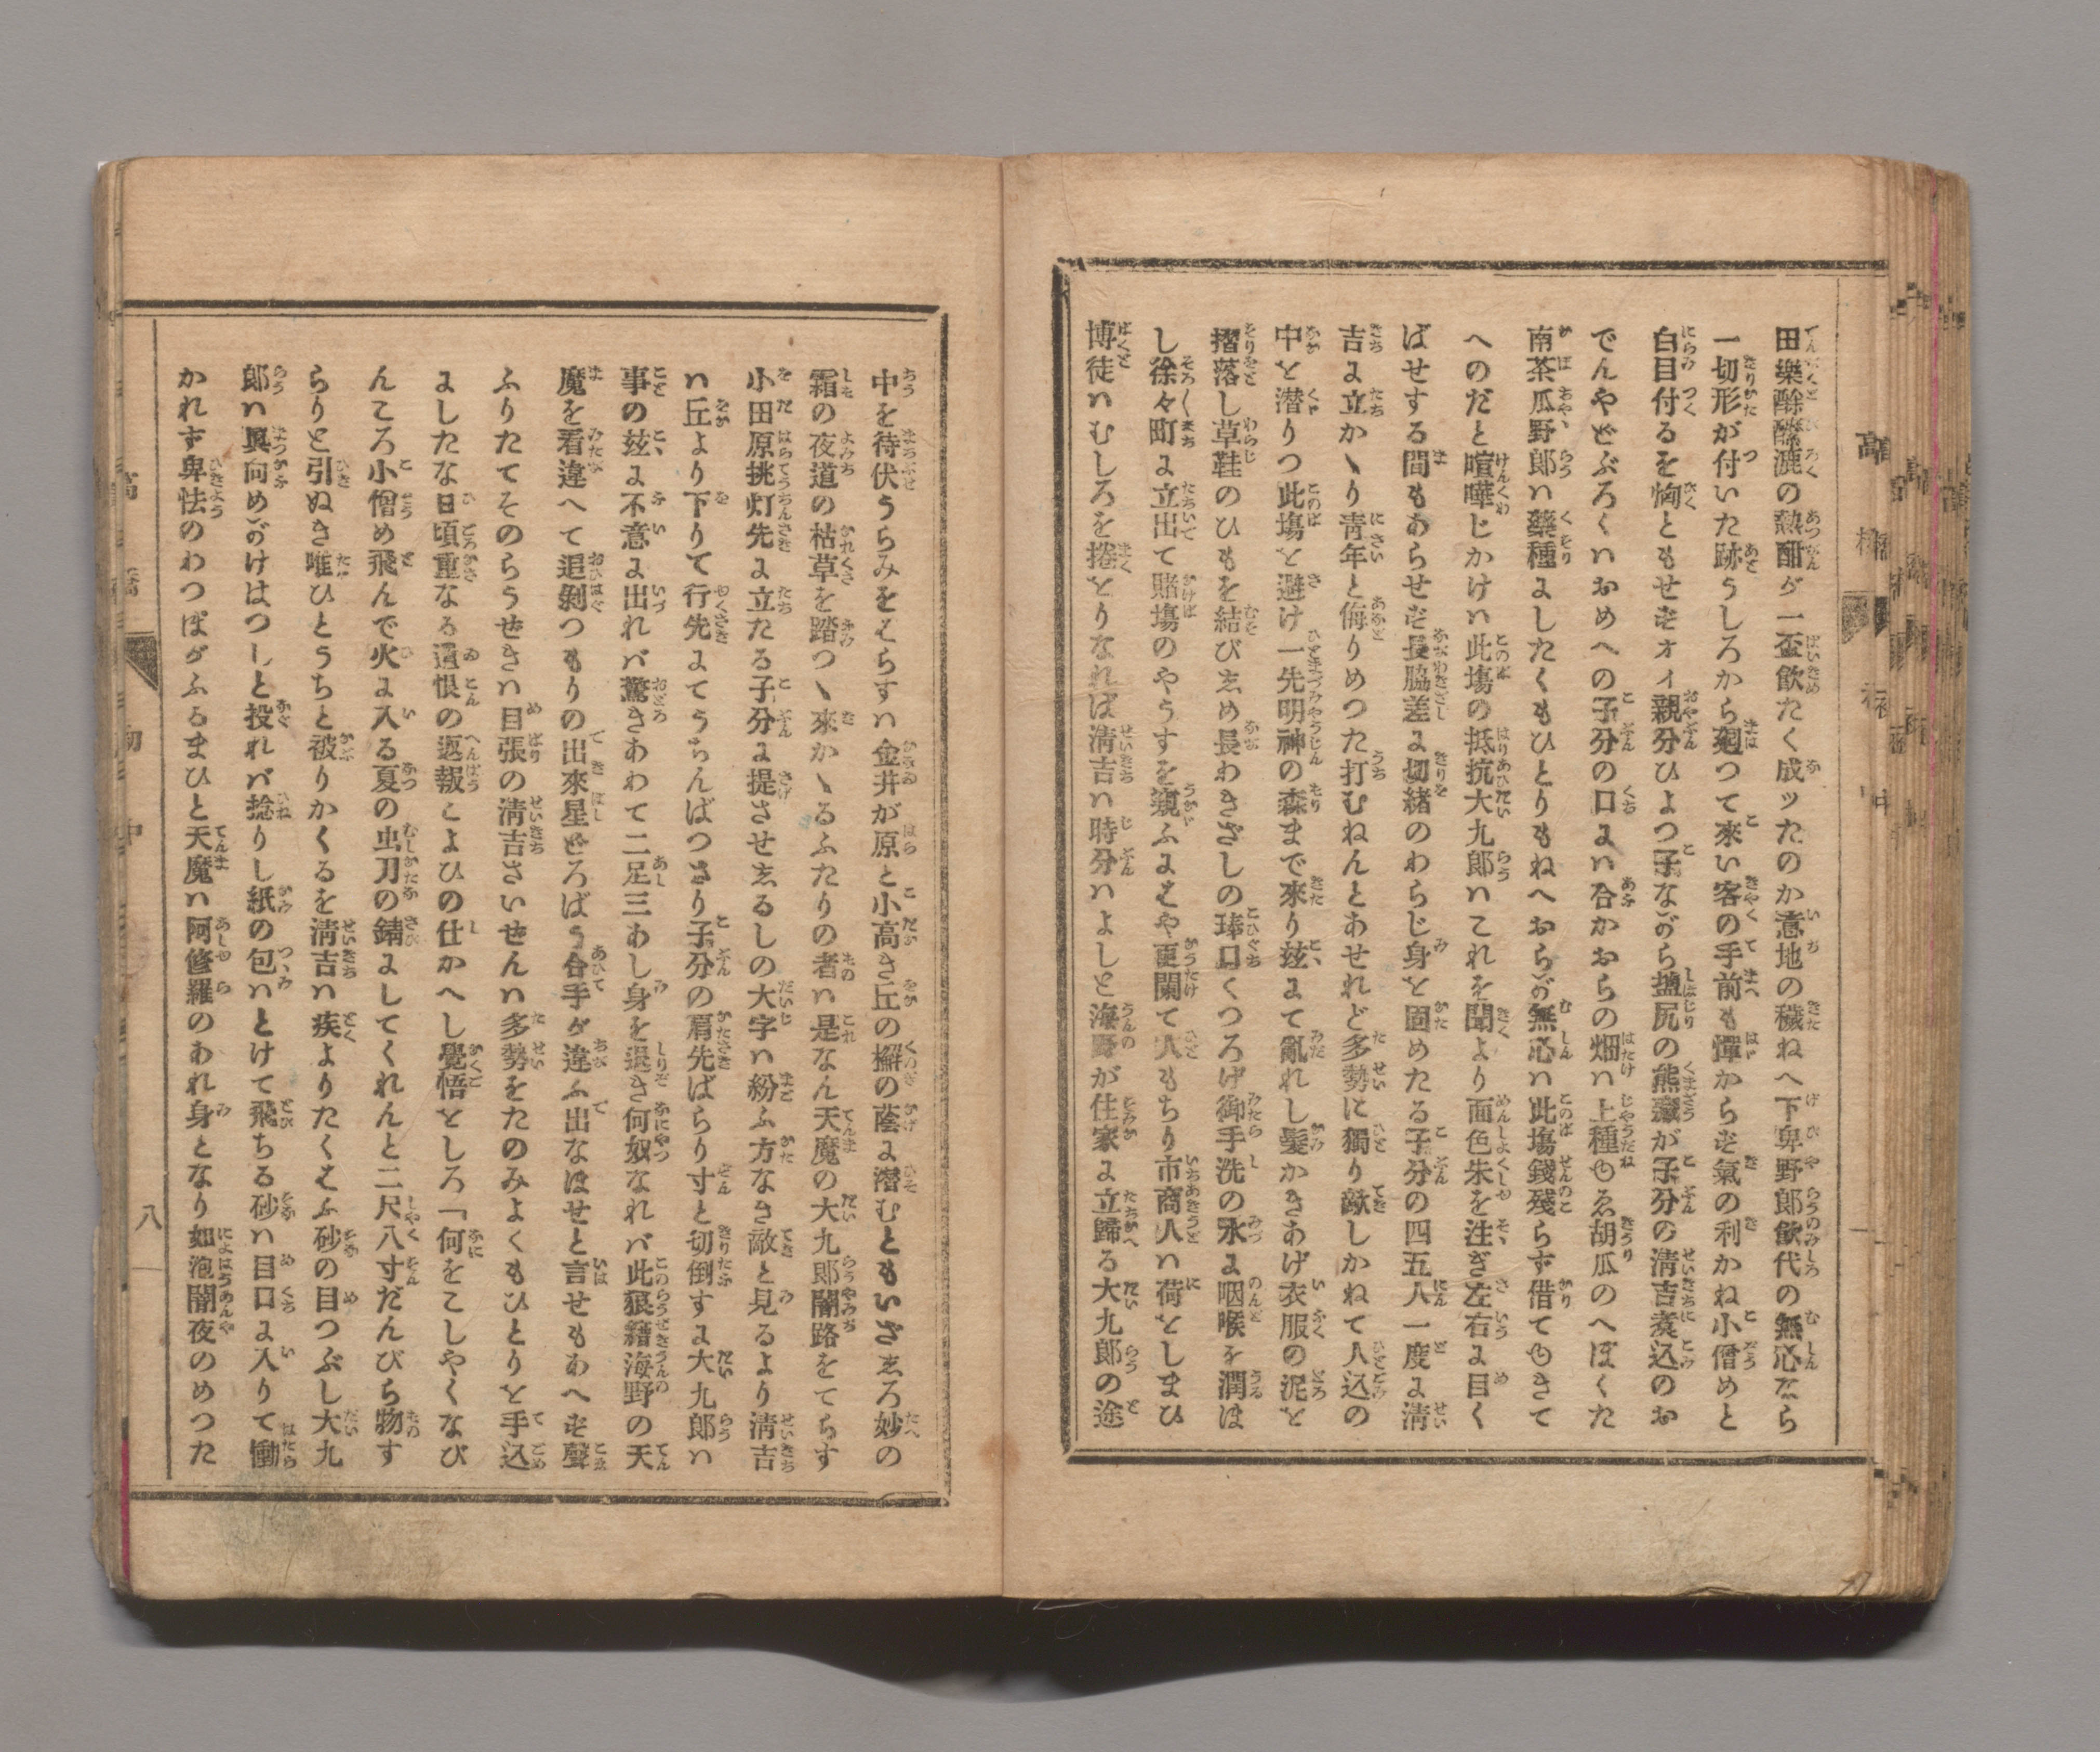 田樂酴醿漉の熱酣ゞ一盃飲たく成ッたのか意地の穢ねへ下卑野郎飲代の無心なら
一切形が付いた跡うしろから廻つて來い客の手前も憚からず氣の利かね小僧めと
白目付るを恟ともせずオィ親分ひよつ子ながら塩尻の熊藏が子分の淸吉煑込のお
でんやどぶろくハおめへの子分の口よハ合かおらの畑ハ上種ゆゑ胡瓜のへぼくた
南茶瓜野郎ハ藥種よしたくもひとりもねへおらが無心ハ此塲錢殘らず借てゆきて
へのだと喧嘩じかけハ此塲の抵抗大九郎ハこれを聞より面色朱を注ぎ左右よ目く
ばせする間もあらせず長脇差よ切緒のわらじ身を固めたる子分の四五人一度よ淸
吉よ立かゝり靑年と侮りめつた打むねんとあせれど多勢に獨り敵しかねて人込の
中を潜りつ此塲を避け一先明神の森まで來り玆よて亂れし髮かきあげ衣服の泥を
摺落し草鞋のひもを結びゑめ長わきざしの琫口くつろげ御手洗の水よ咽喉を潤ほ
し徐々町よ立出て賭塲のやうすを窺ふよはや更闌て人もちり市商人ハ荷をしまひ
博徒ハむしろを捲とりなれば淸吉ハ時分ハよしと海野が住家よ立歸る大九郎の途
中を待伏うらみをはらすハ金井が原と小高き丘の櫟の蔭よ潜むともいざゑろ妙の
霜の夜道の枯草を踏つゝ來かゝるふたりの者ハ是なん天魔の大九郎闇路をてらす
小田原挑灯先よ立たる子分よ提させゑるしの大字ハ紛ふ方なき敵と見るより淸吉
ハ丘より下りて行先よてうちんばつさり子分の肩先ばらり寸と切倒すよ大九郎ハ
事の玆よ不意よ出れバ驚きあわて二足三あし身を退き何奴なれバ此狼藉海野の天
魔を看違へて追剝つもりの出來星どろばう合手ゞ違ふ出なほせと言せもあへず聲
ふりたてそのらうぜきハ目張の淸吉さいぜんハ多勢をたのみよくもひとりを手込
よしたな日頃重なる遺恨の返報こよひの仕かへし覺悟をしろ「何をこしやくなび
んころ小僧め飛んで火よ入る夏の虫刀の錆よしてくれんと二尺八寸だんびら物す
らりと引ぬき唯ひとうちと被りかくるを淸吉ハ疾よりたくはふ砂の目つぶし大九
郎ハ眞向めがけはつしと投れバ捻りし紙の包ハとけて飛ちる砂ハ目口よ入りて働
かれず卑怯のわつぱゞふるまひと天魔ハ阿修羅のあれ身となり如泡闇夜のめつた
八